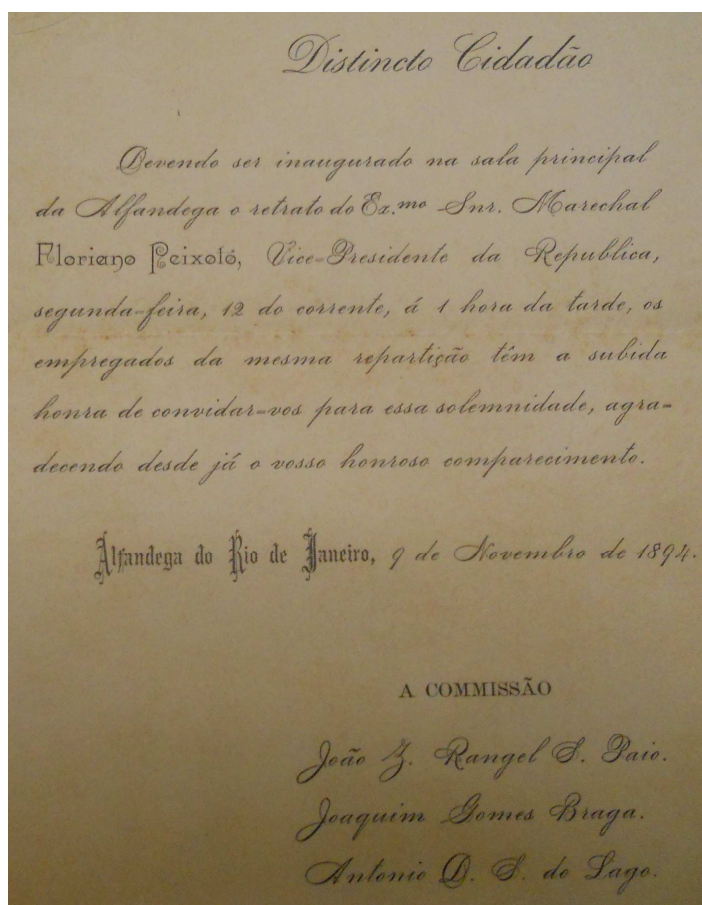 Distincto Cidadão
Devendo ser inaugurado na sala principal
da Alfandega o retrato do Ex.mo Snr. Marechal
Floriano Peixoto, Vice-Presidente da Republica,
segunda-feira, 12 do corrente, á 1 hora da tarde, os
empregados da mesma repartição têm a subida
honra de convidar-vos para essa solemnidade, agra-
decendo desde já o vosso honroso comparecimento.
Alfandega do Rio de Janeiro, 9 de Novembro de 1894.
A COMMISSÃO
João Z. Rangel S. Paio.
Joaquim Gomes Braga.
Antonio D. S. do Lago.